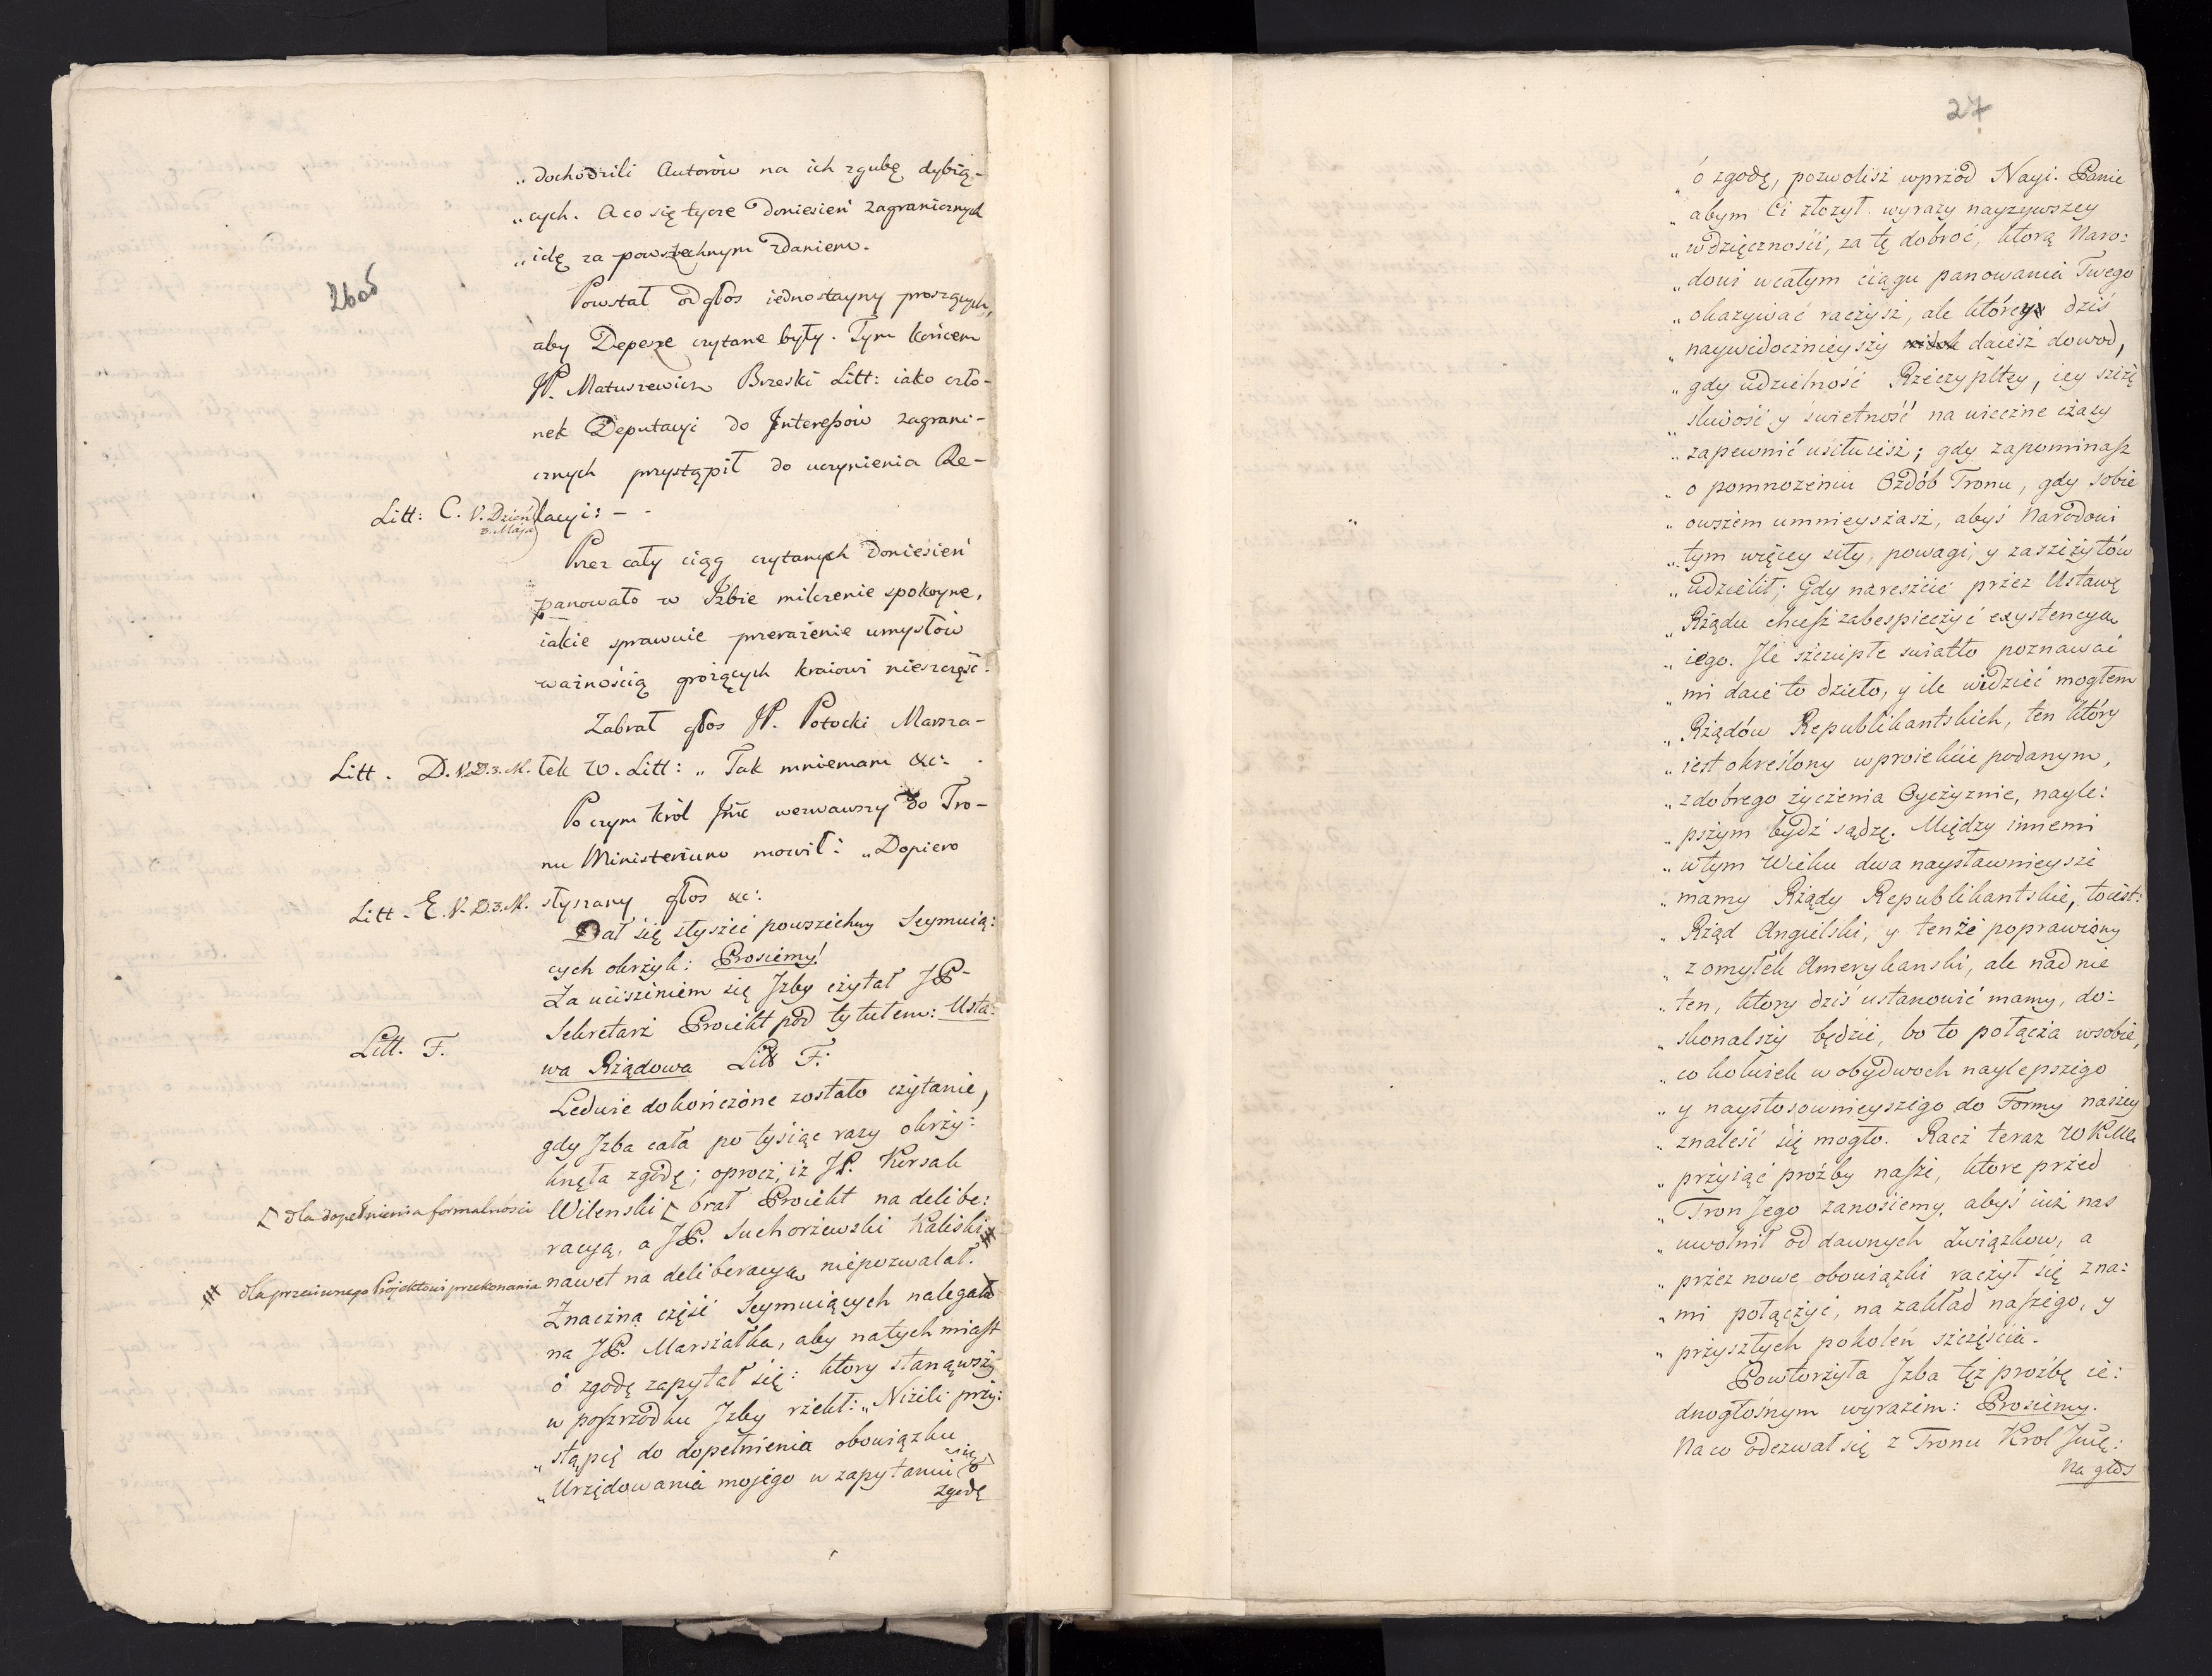 26od
„dochodzili Autorów na ich zgubę dybią-
„cych. A co się tycze Doniesień Zagranicznych
„idę za powszechnym Zdaniem.
Powstał odgłos iednostayny proszących,
aby Depesze czytane były. Tym końcem
JP. Matuszewicz Brzeski Litt: iako czło-
nek Deputacyi do Interessów Zagrani-
cznych przystąpił do uczynienia Re-
Litt: C. V. Dzień 3. Maja lacyi: –
Przez cały ciąg czytanych Doniesień
panowało w Izbie milczenie spokoyne,
iakie sprawuie przerażenie umysłów
ważnością grożących kraiowi nieszczęść.
Zabrał głos JP. Potocki Marsza-
Litt. D. V. D. 3. M. łek W. Litt: „Tak mniemam &c:
Po czym Król Jmć wezwawszy do Tro-
nu Ministerium mowił: „Dopiero
Litt. E. V. D. 3. M. słyszany głos &c:
Dał się słyszeć powszechny Seymuią:
cych okrzyk: Prosiemy!
Za uciszeniem się Izby czytał JP
Sekretarz Proiekt pod tytułem: Usta:
Litt. F.
wa Rządowa Litt F:
Ledwie dokończone zostało czytanie,
gdy Izba cała po tysiąc razy okrzy:
knęła zgodę; oprocz, iz JP. Korsak
[ dla dopełnienia formalności
Wilenski [ brał Proiekt na delibe:
racyą, a JP. Suchorzewski Kaliski #
# dla przeciwnego Projektowi przekonania
nawet na deliberacyą niepozwalał.
Znaczna część Seymuiących nalegała
na JP. Marszałka, aby natychmiast
ó zgodę zapytał się: ktory stanąwszy
w poszrzodku Izby rzekł: „Niżeli przy:
„stąpię do dopełnienia obowiązku
„Urzędowania mojego w zapytaniu się ó
zgodę
27
„ó zgodę, pozwolisz wprzód Nayi: Panie
„abym Ci złożył wyrazy nayzywszey
„wdzięczności, za tę dobroć, ktorą Naro:
„dowi wcałym ciągu panowania Twego
„okazywać raczysz, ale którey dziś
„naywidocznieyszy daiesz dowod,
„gdy udzielność Rzeczypltey, iey szczę
„sliwość y swietność na wieczne czasy
„zapewnić usiłuiesz; gdy zapominasz
„o pomnożeniu Ozdób Tronu, gdy sobie
„owszem umnieyszasz, abyś Narodowi
„tym więcey siły, powagi, y zaszczytów
„udzielił; Gdy nareszcie przez Ustawę
„Rządu chcesz zabespieczyć exystencyą
„iego. Ile szczupłe swiatło poznawać
„mi daie to dzieło, y ile widzieć mogłem
„Rządów Republikantskich, ten który
„iest określony wproiekcie podanym,
„zdobrego życzenia Oyczyznie, nayle:
„pszym bydź sądzę. Między innemi
„wtym Wieku dwa naysławnieysze
„mamy Rządy Republikantskie, toiest:
„Rząd Angielski, y tenże poprawiony
„z omyłek Amerykanski, ale nad nie
„ten, ktory dziś ustanowić mamy, do:
„skonalszy będzie, bo to połącza wsobie,
„cokolwiek w obydwoch naylepszego
„y naystosownieyszego do Formy naszey
„znaleść się mogło. Racz teraz WKMć
„przyiąć proźby nasze, ktore przed
„Tron Jego zanosiemy, abyś iuż nas
„uwolnił od dawnych Związkow, a
„przez nowe obowiązki raczył się zna:
„mi połączyć, na zakład naszego, y
„przyszłych pokoleń szczęścia.
Powtorzyła Izba tęż prozbę ie:
dnogłośnym wyrazem: Prosiemy.
Naco odezwał się z Tronu Krol Jmć:
Na głos